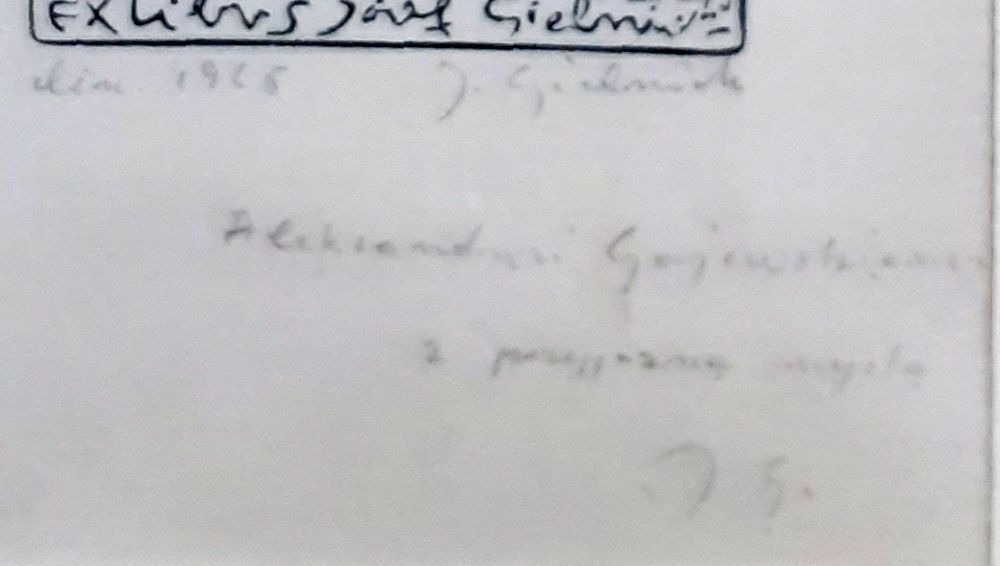 EX LIBRIS Józef Gielniak
lino 1965 J. Gielniak
Aleksandrowi Gajewskiemu
z przyjazną myślą
J G.